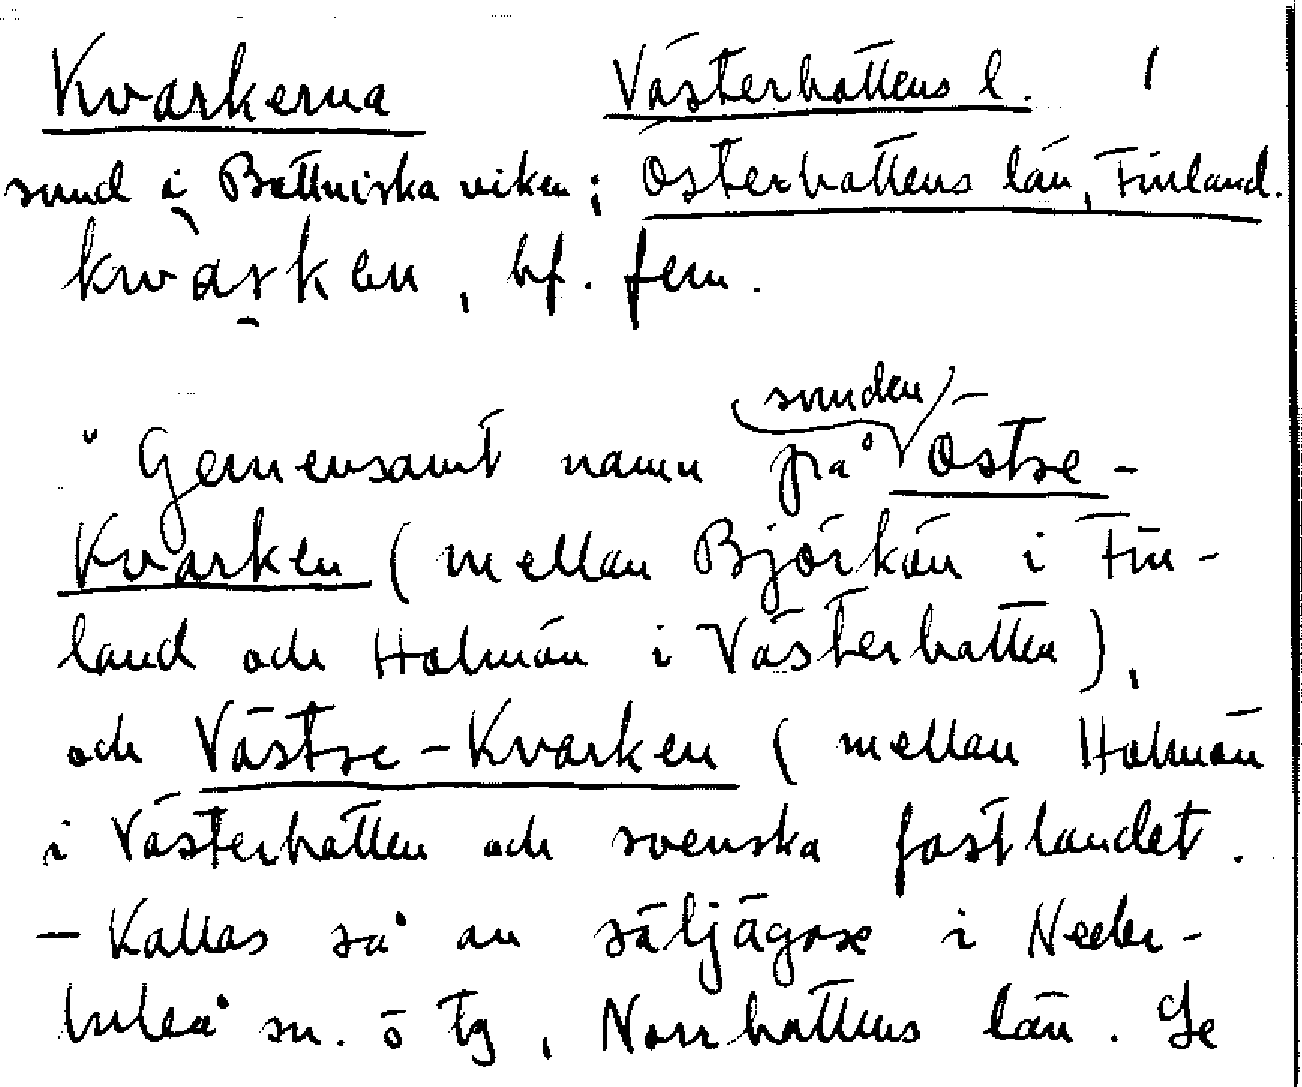 Kvarkerna Västerbottens l. 1
sund i Bottniska viken; Österbottens län, Finland.
kwarken, bf. fem.
sunden
"Gemensamt namn på Östre-
Kvarken (mellan Björkön i Fin-
land och Holmön i Västerbotten),
och Västre-Kvarken (mellan Holmön
i Västerbotten och svenska fastlandet.
- Kallas så av säljägare i Neder-
luleå sn. o tg, Norrbottens län. Se